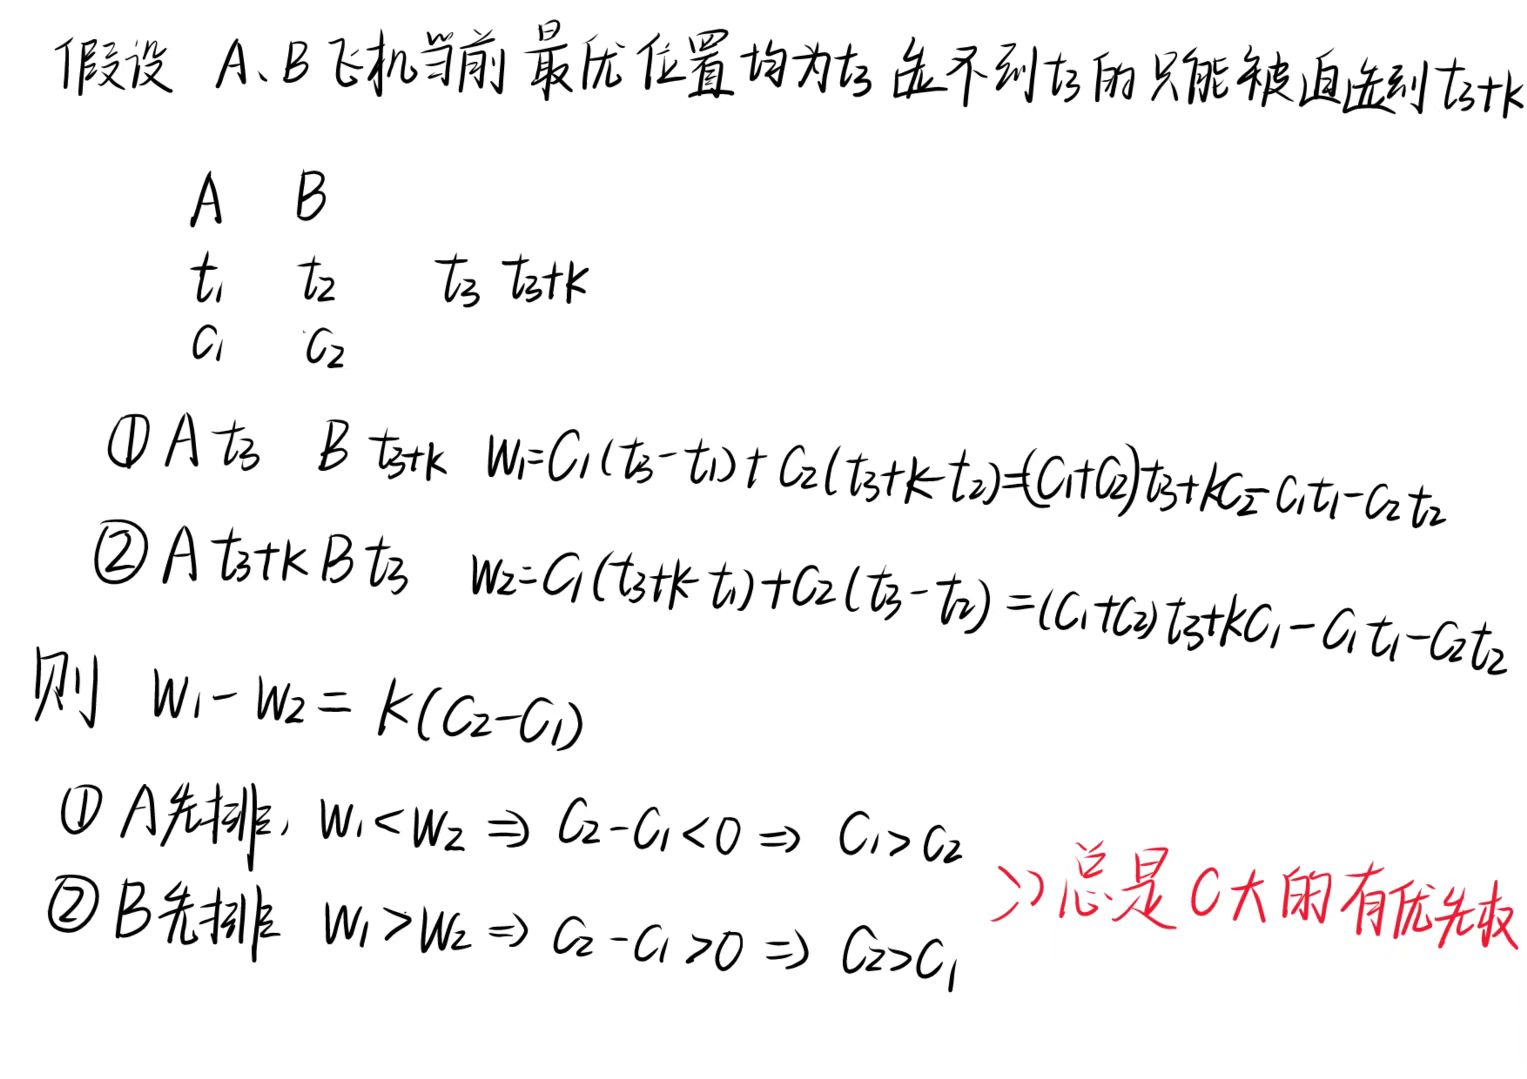 假设 A、B飞机当前最优位置均为t₃ 选不到t₃的只能被迫选到t₃+k
A B
t₁ t₂ t₃ t₃+k
C₁ C₂
① A t₃ B t₃+k W₁=C₁(t₃-t₁)+C₂(t₃+k-t₂)=(C₁+C₂)t₃+kC₂-C₁t₁-C₂t₂
② A t₃+k B t₃ W₂=C₁(t₃+k-t₁)+C₂(t₃-t₂)=(C₁+C₂)t₃+kC₁-C₁t₁-C₂t₂
则 W₁-W₂=k(C₂-C₁)
① A先排, W₁<W₂ ⇒ C₂-C₁<0 ⇒ C₁>C₂
② B先排 W₁>W₂ ⇒ C₂-C₁>0 ⇒ C₂>C₁
>> 总是C大的有优先权